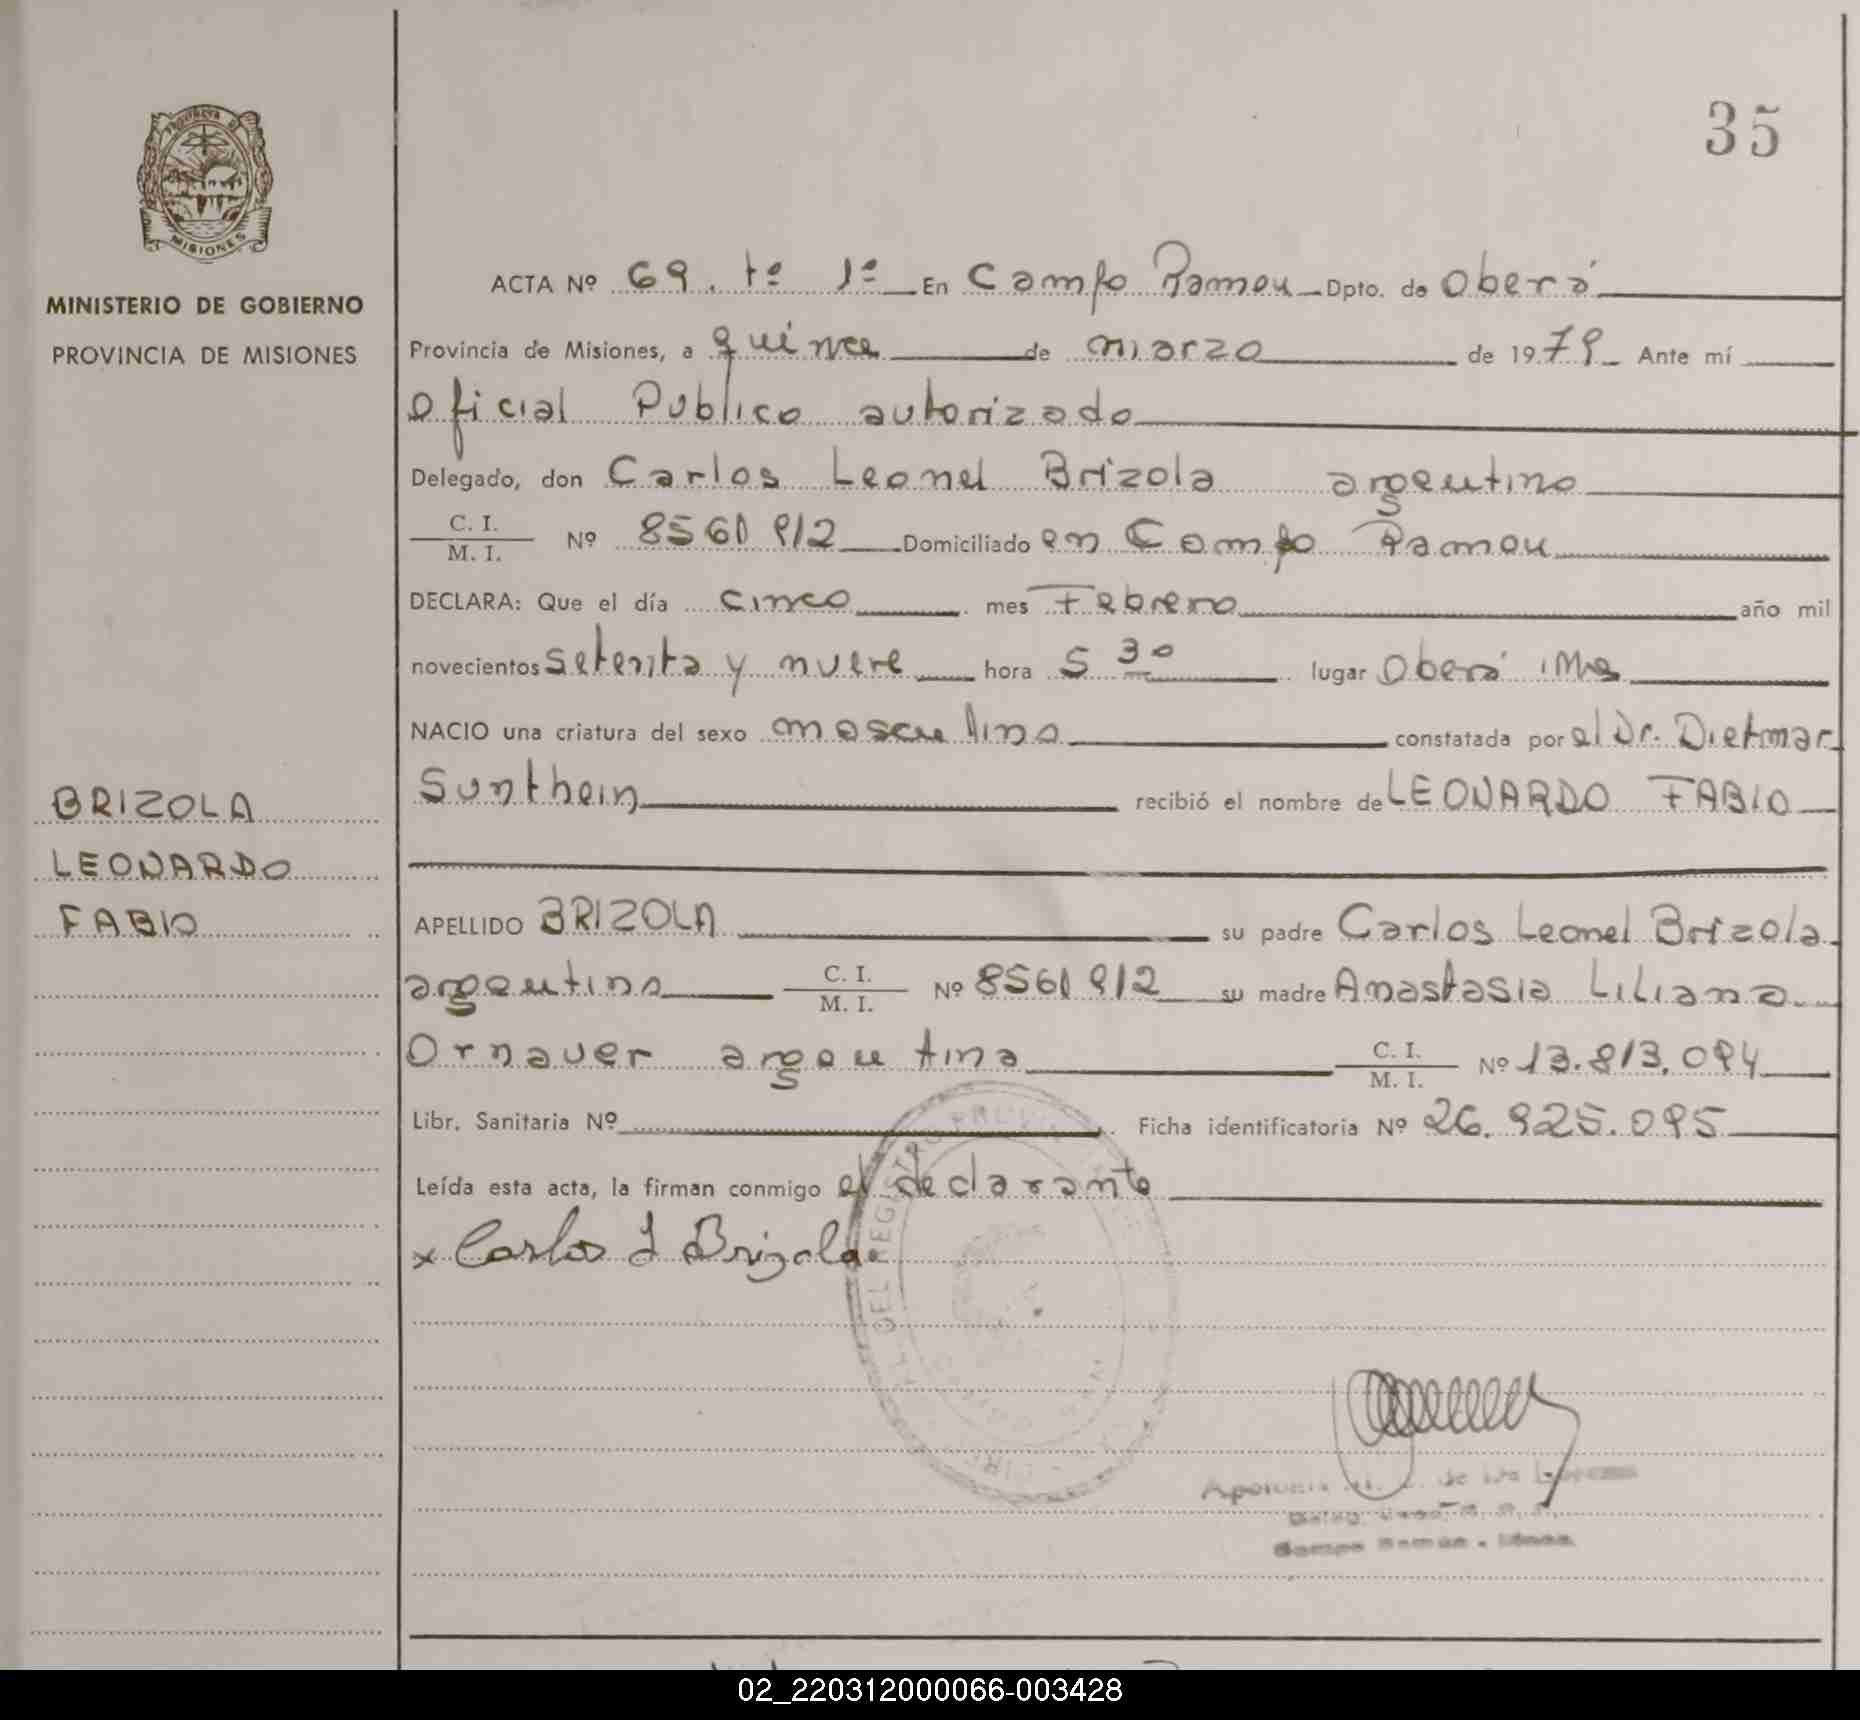 35
MISIONES
MINISTERIO DE GOBIERNO
PROVINCIA DE MISIONES
ACTA Nº 69. tº 1º En Campo Ramón Dpto. de Oberá
Provincia de Misiones, a quince de marzo de 1979 Ante mí
Oficial Publico autorizado
Delegado, don Carlos Leonel Brizola argentino
C. I.
M. I. Nº 8560912 Domiciliado en Campo Ramón
DECLARA: Que el día cinco mes Febrero año mil
novecientos setenta y nueve hora 5 30 lugar Oberá Mnes
NACIO una criatura del sexo masculino constatada por el Dr. Dietmar
Sunthein recibió el nombre de LEONARDO FABIO
BRIZOLA
LEONARDO
FABIO
APELLIDO BRIZOLA su padre Carlos Leonel Brizola
argentino C. I.
M. I. Nº 8560912 su madre Anastasia Liliana
Ornauer argentina C. I.
M. I. Nº 13.813.094
Libr. Sanitaria Nº Ficha identificatoria Nº 26.925.095
Leída esta acta, la firman conmigo el declarante
x Carlos L Brizola
DEL REGISTRO PROVIN
Campo Ramón - Mnes.
02_220312000066-003428